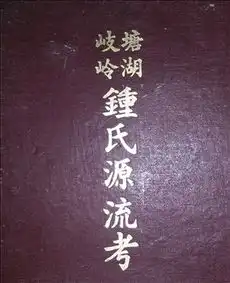 塘湖
岐岭
鍾氏源流考